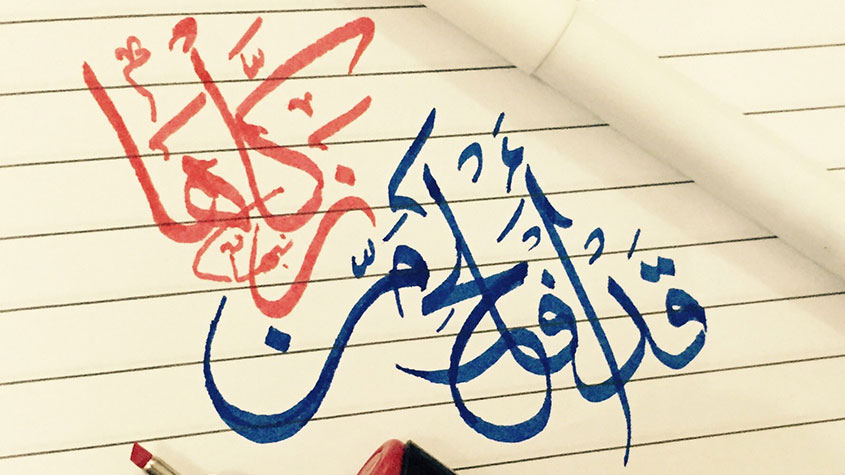 قَدْ أَفْلَحَ مَنْ
زَكَّاهَا